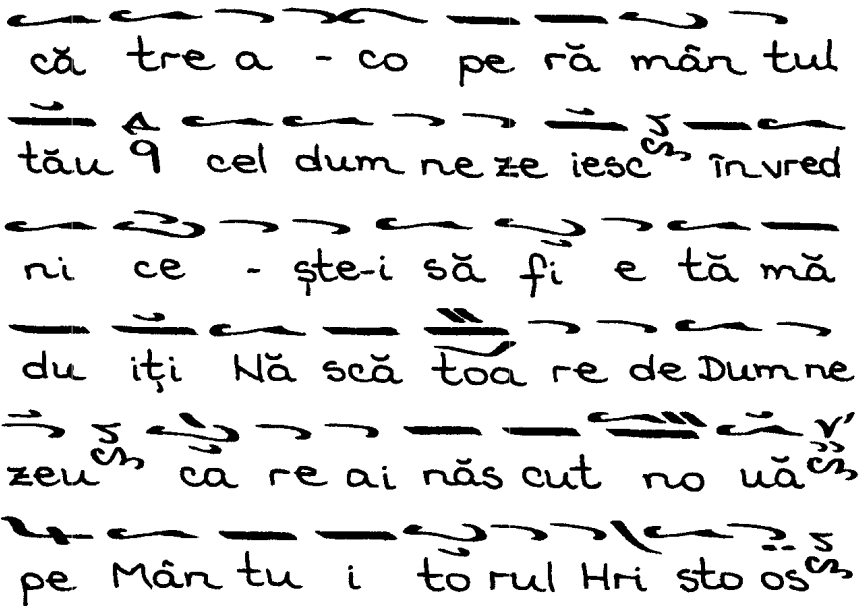 că tre a - co pe ră mân tul
tău 9 cel dum ne ze iesc învred
ni ce - ște-i să fi e tă mă
du iți Nă scă toa re de Dum ne
zeu ca re ai năs cut no uă
pe Mân tu i to rul Hri sto os